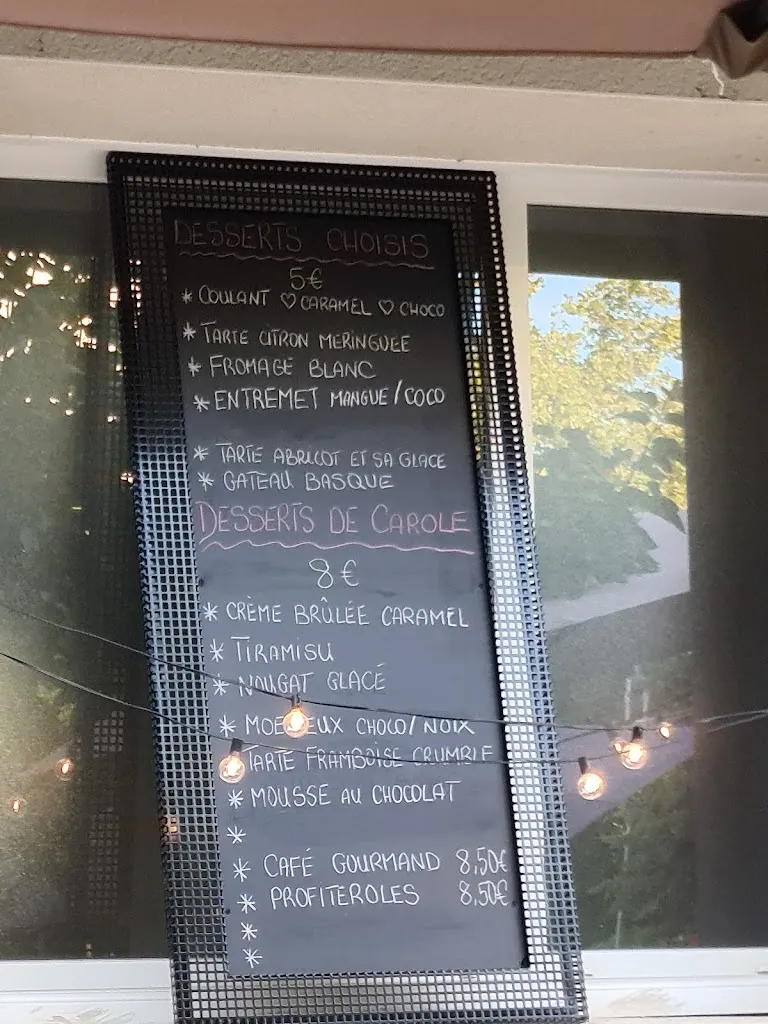 DESSERTS CHOISIS
5€
* COULANT ♡ CARAMEL ♡ CHOCO
* TARTE CITRON MERINGUEE
* FROMAGE BLANC
* ENTREMET MANGUE/COCO
* TARTE ABRICOT ET SA GLACE
* GATEAU BASQUE
DESSERTS DE CAROLE
8€
* CRÈME BRÛLÉE CARAMEL
* TIRAMISU
* NOUGAT GLACÉ
* MOELLEUX CHOCO/NOIX
TARTE FRAMBOISE CRUMBLE
* MOUSSE AU CHOCOLAT
*
* CAFÉ GOURMAND 8,50€
* PROFITEROLES 8,50€
*
*